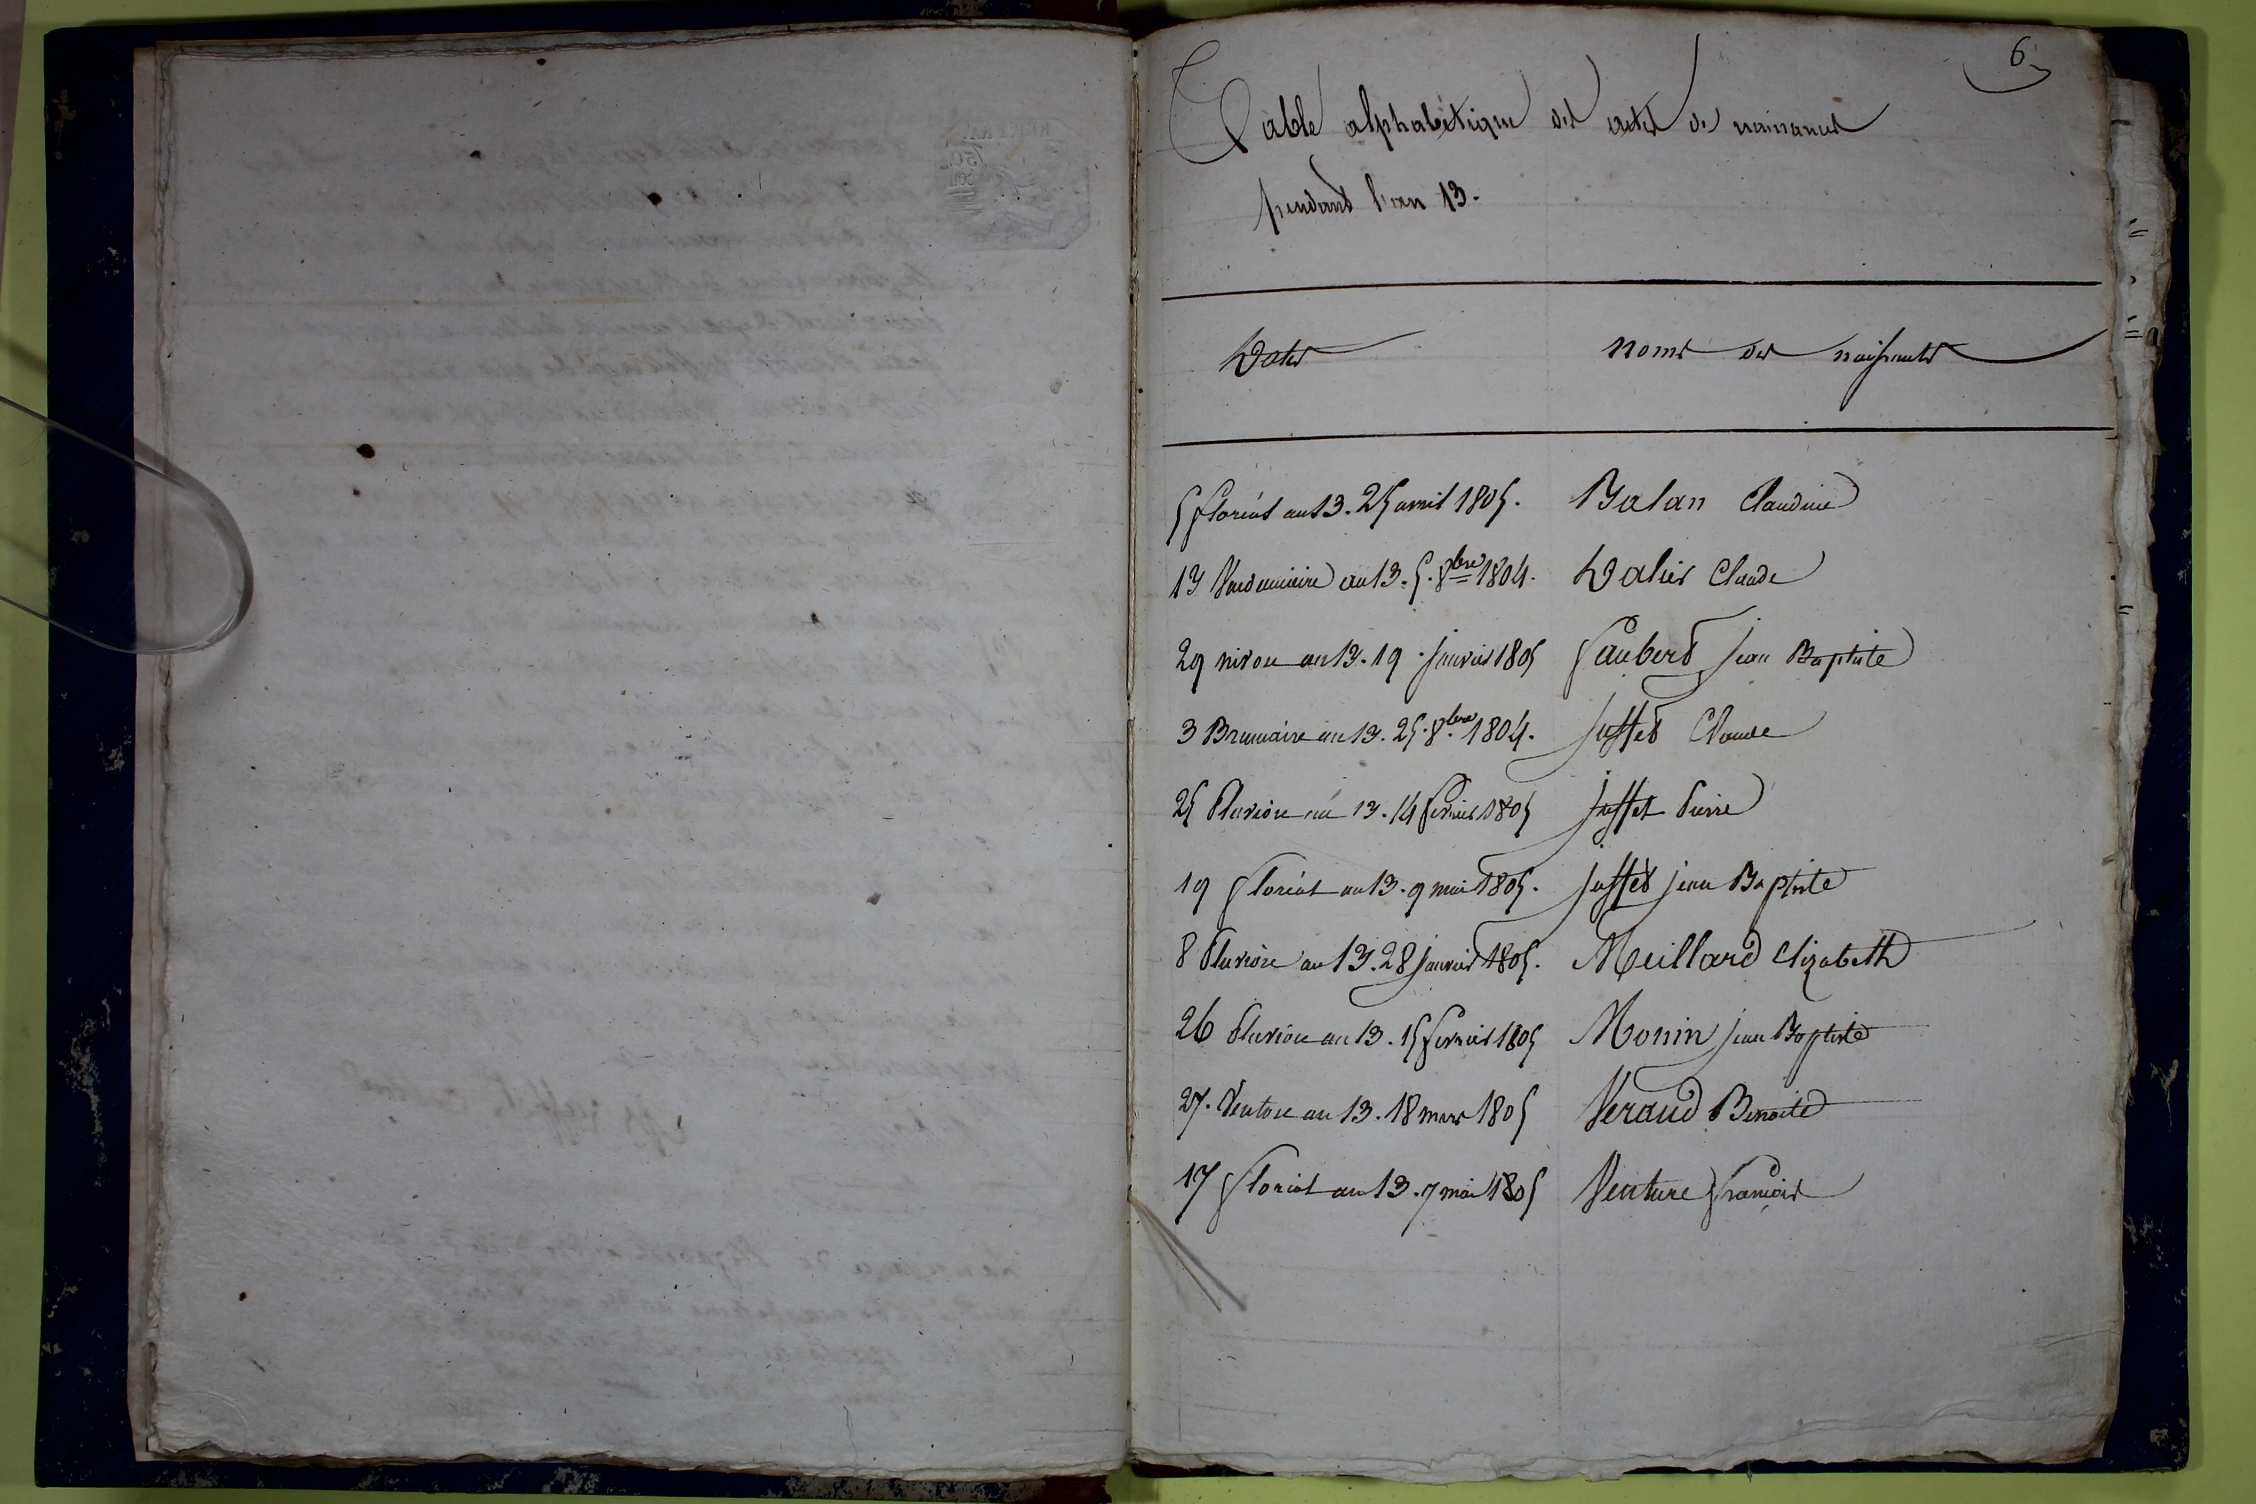 6
Table alphabétique des actes de naissances
pendant l'an 13.
Dates noms des naissants
5 floréal an 13. 25 avril 1805. Balan Claudine
13 Vendemiaire an 13. 5. 8bre 1804. Dalier Claude
29 nivose an 13. 19 janvier 1805 faubert jean Baptiste
3 Brumaire an 13. 25. 8bre 1804. juffet Claude
25 Pluviose an 13. 14 fevrier 1805 juffet Pierre
19 floréal an 13. 9 mai 1805. juffet jean Baptiste
8 Pluviose an 13. 28 janvier 1805. Meillard Elizabeth
26 Pluviose an 13. 15 fevrier 1805 Monin jean Baptiste
27. Ventose an 13. 18 mars 1805 Veraud Benoite
17 floréal an 13. 7 mai 1805 Venture françois